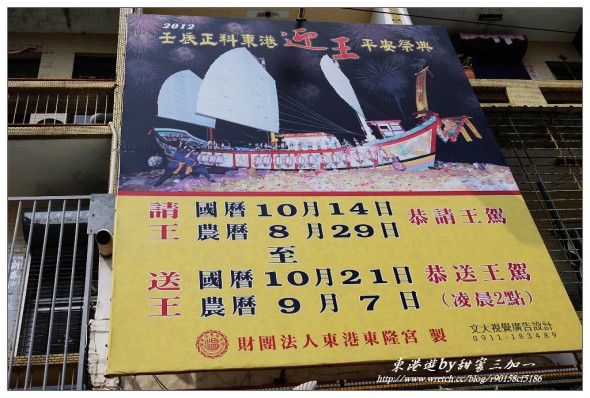 2012
壬辰正科東港迎王平安祭典
請王 國曆 10月14日 恭請王駕
農曆 8月29日
至
送王 國曆 10月21日 恭送王駕
農曆 9月7日 (凌晨2點)
財團法人東港東隆宮 製
文大視覺廣告設計
0911-183489
東港遊by甜蜜三加一
http://www.wretch.cc/blog/r90158cf5186